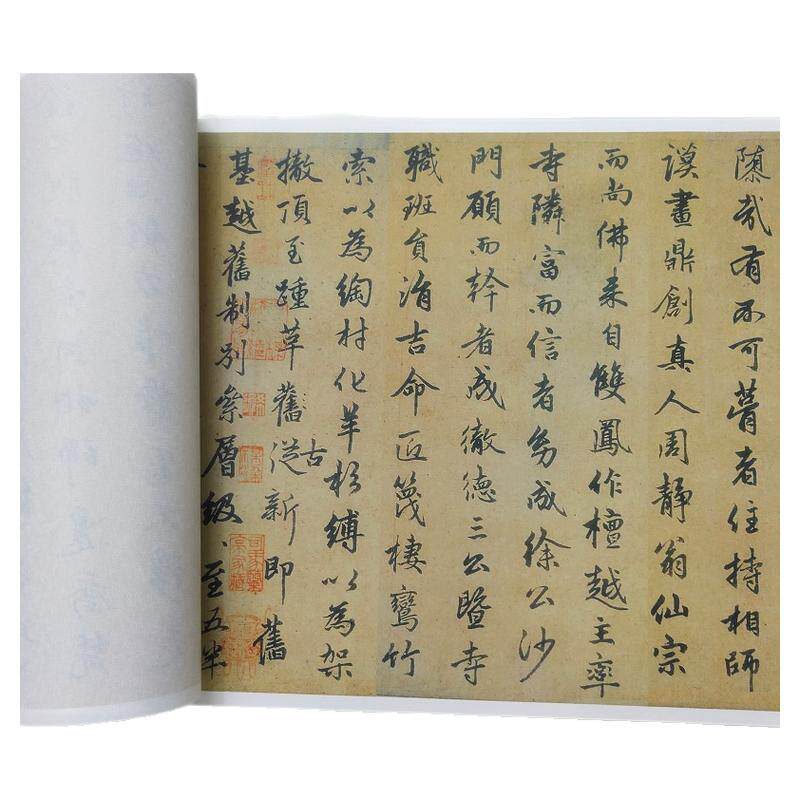 隳哉有不可瞢者住持相師
謨畫鼎創真人周靜翁仙宗
而尚佛來自雙鳳作檀越主率
寺隣富而信者努成徐公沙
門願而幹者成徹德三公暨寺
職班貟涓吉命匠篾棲鸞竹
索以為綯村化羊杉縛以為架
撤頂至踵革舊從新即舊
古
基越舊制別絫層級至五半